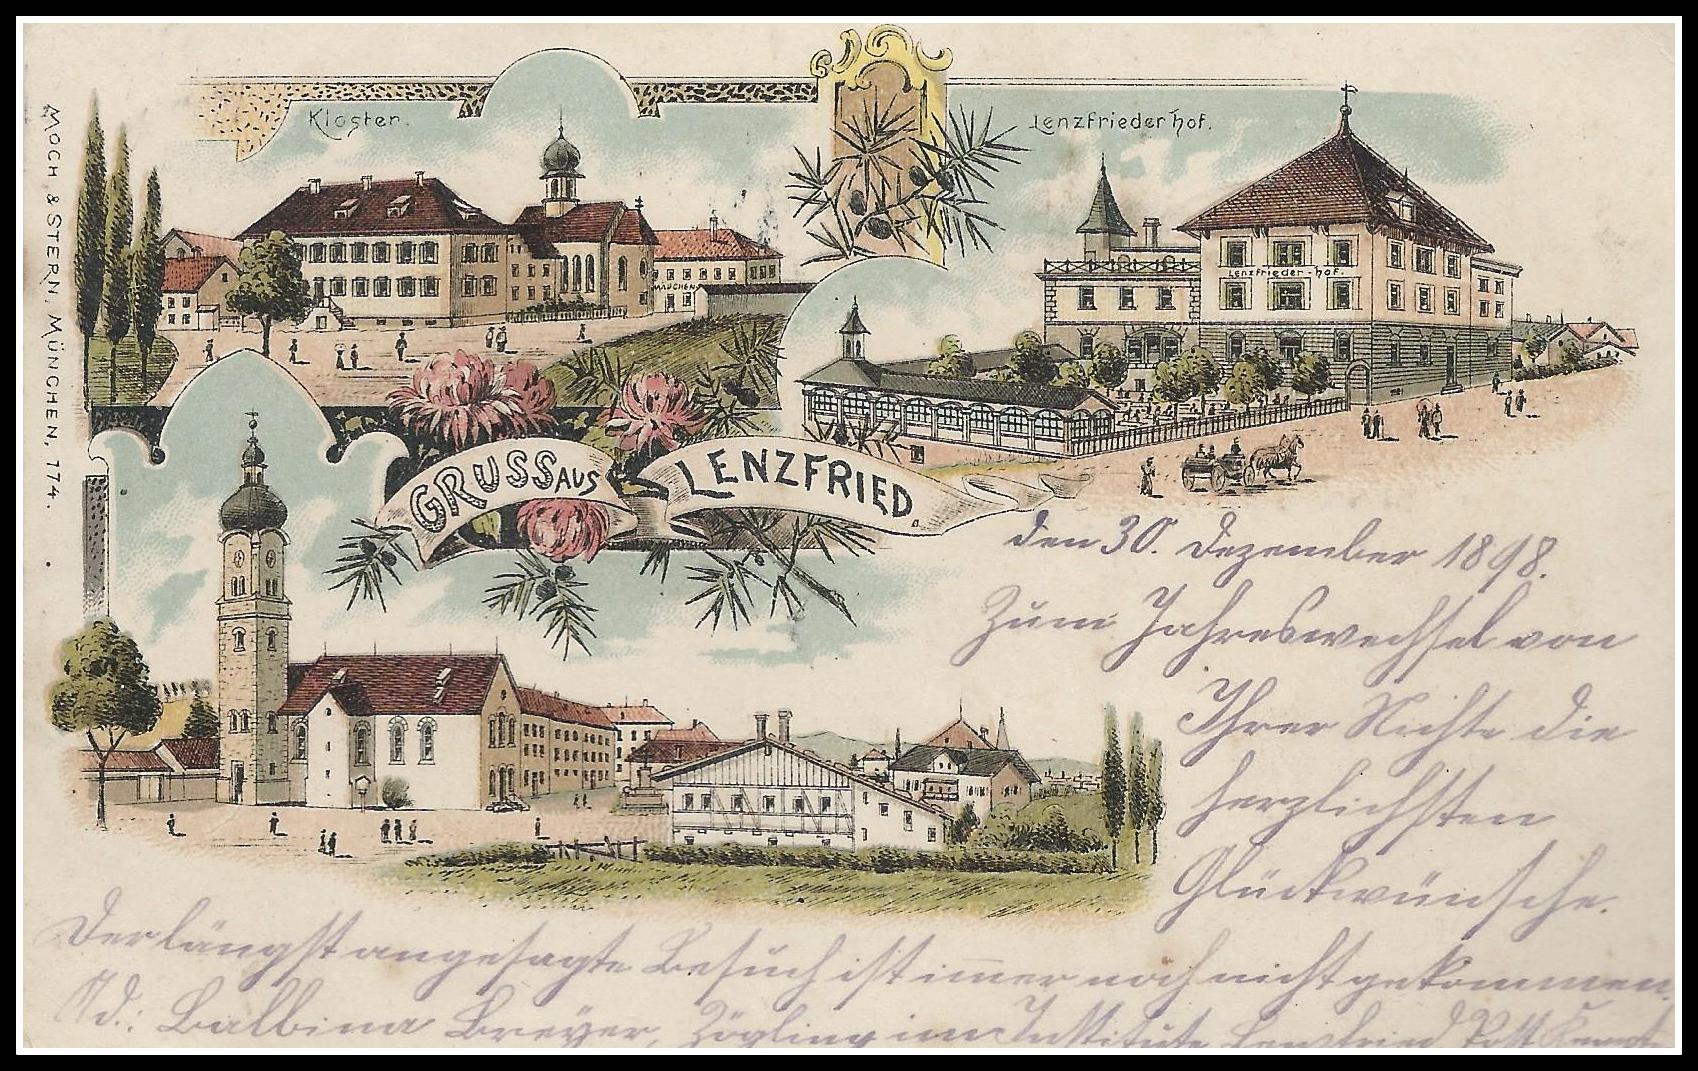 Kloster.
Lenzfriederhof.
Lenzfrieder-hof.
MÄDCHEN
MOCH & STERN, MÜNCHEN, 774.
GRUSS AUS LENZFRIED
den 30. Dezember 1898.
Zum Jahreswechsel von
Ihrer Nichte die
herzlichsten
Glückwünsche.
Der längst angesagte Besuch ist im̄er noch nicht gekommen.
Ad.: Balbina Breyer, Zögling im Institute Lenzfried Post